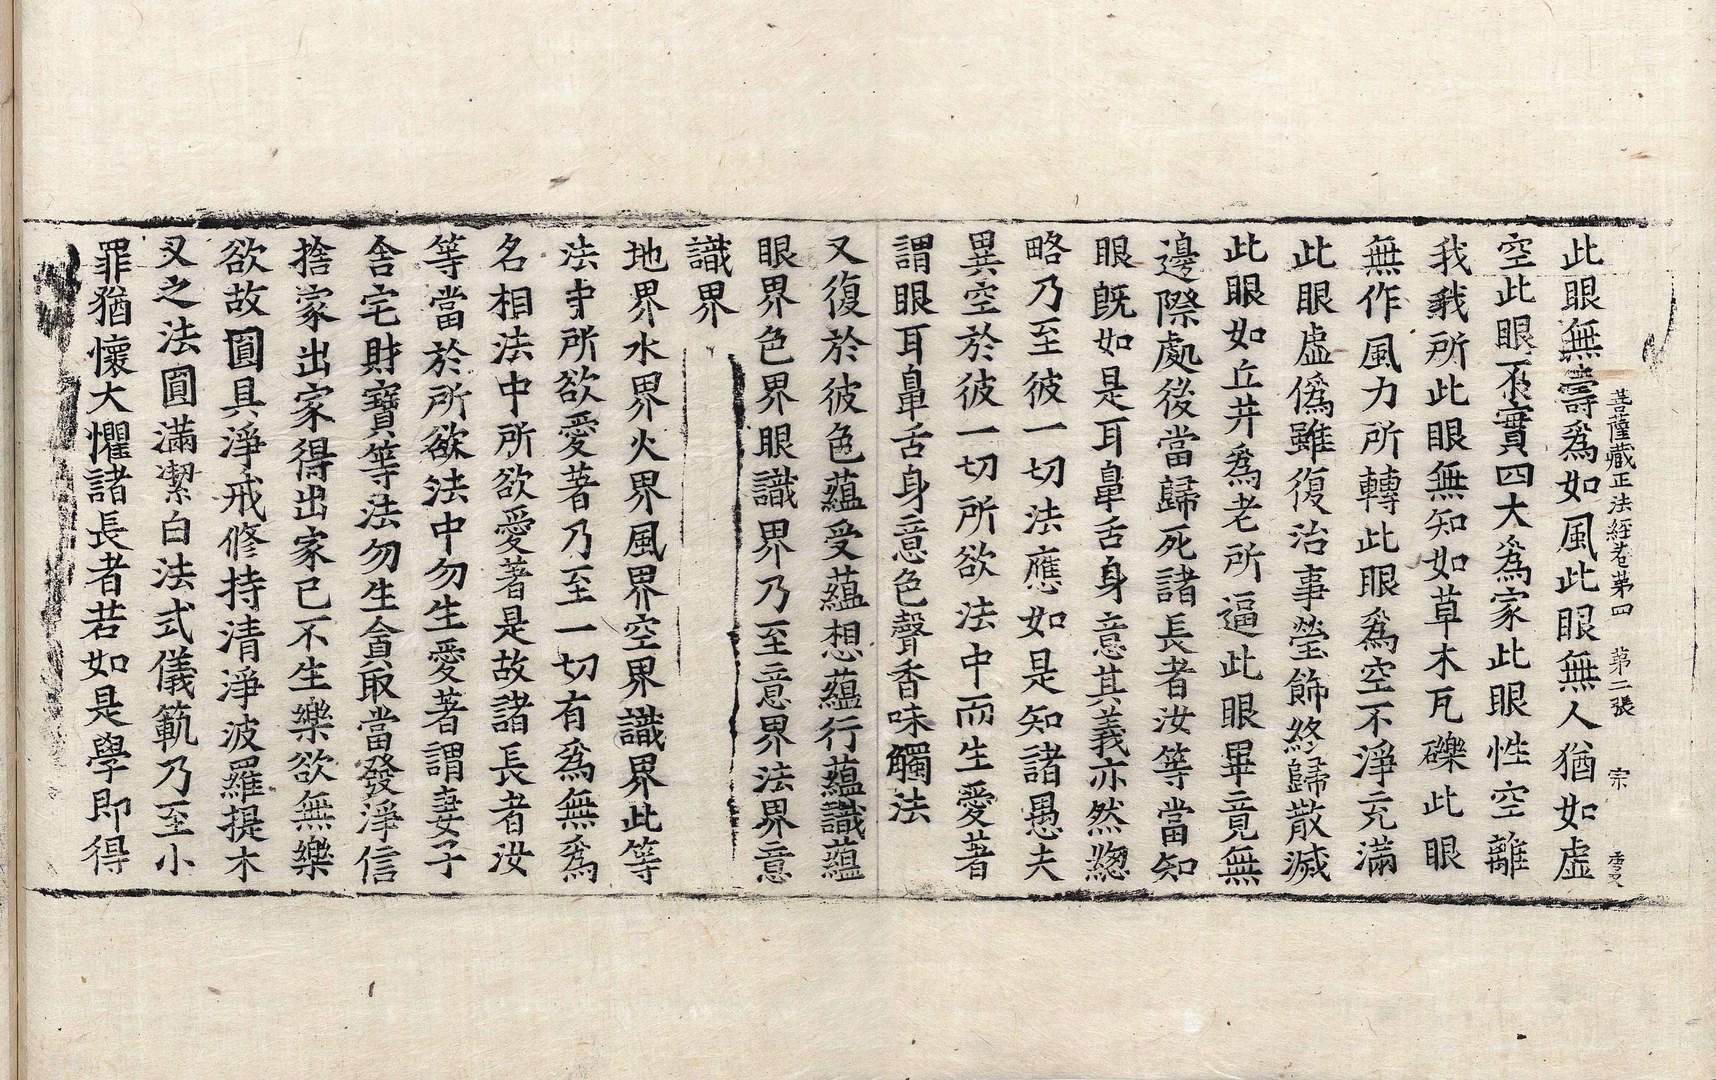 菩薩藏正法經卷第四 第二張 宗
此眼無壽爲如風此眼無人猶如虛
空此眼不實四大爲家此眼性空離
我我所此眼無知如草木瓦礫此眼
無作風力所轉此眼爲空不淨充滿
此眼虛僞雖復治事瑩飾終歸散滅
此眼如丘井爲老所逼此眼畢竟無
邊際處後當歸死諸長者汝等當知
眼旣如是耳鼻舌身意其義亦然緫
略乃至彼一切法應如是知諸愚夫
異空於彼一切所欲法中而生愛著
謂眼耳鼻舌身意色聲香味觸法
又復於彼色蘊受蘊想蘊行蘊識蘊
眼界色界眼識界乃至意界法界意
識界
地界水界火界風界空界識界此等
法中所欲愛著乃至一切有爲無爲
名相法中所欲愛著是故諸長者汝
等當於所欲法中勿生愛著謂妻子
舍宅財寶等法勿生貪取當發淨信
捨家出家得出家已不生樂欲無樂
欲故圓具淨戒修持清淨波羅提木
叉之法圓滿潔白法式儀範乃至小
罪猶懷大懼諸長者若如是學即得